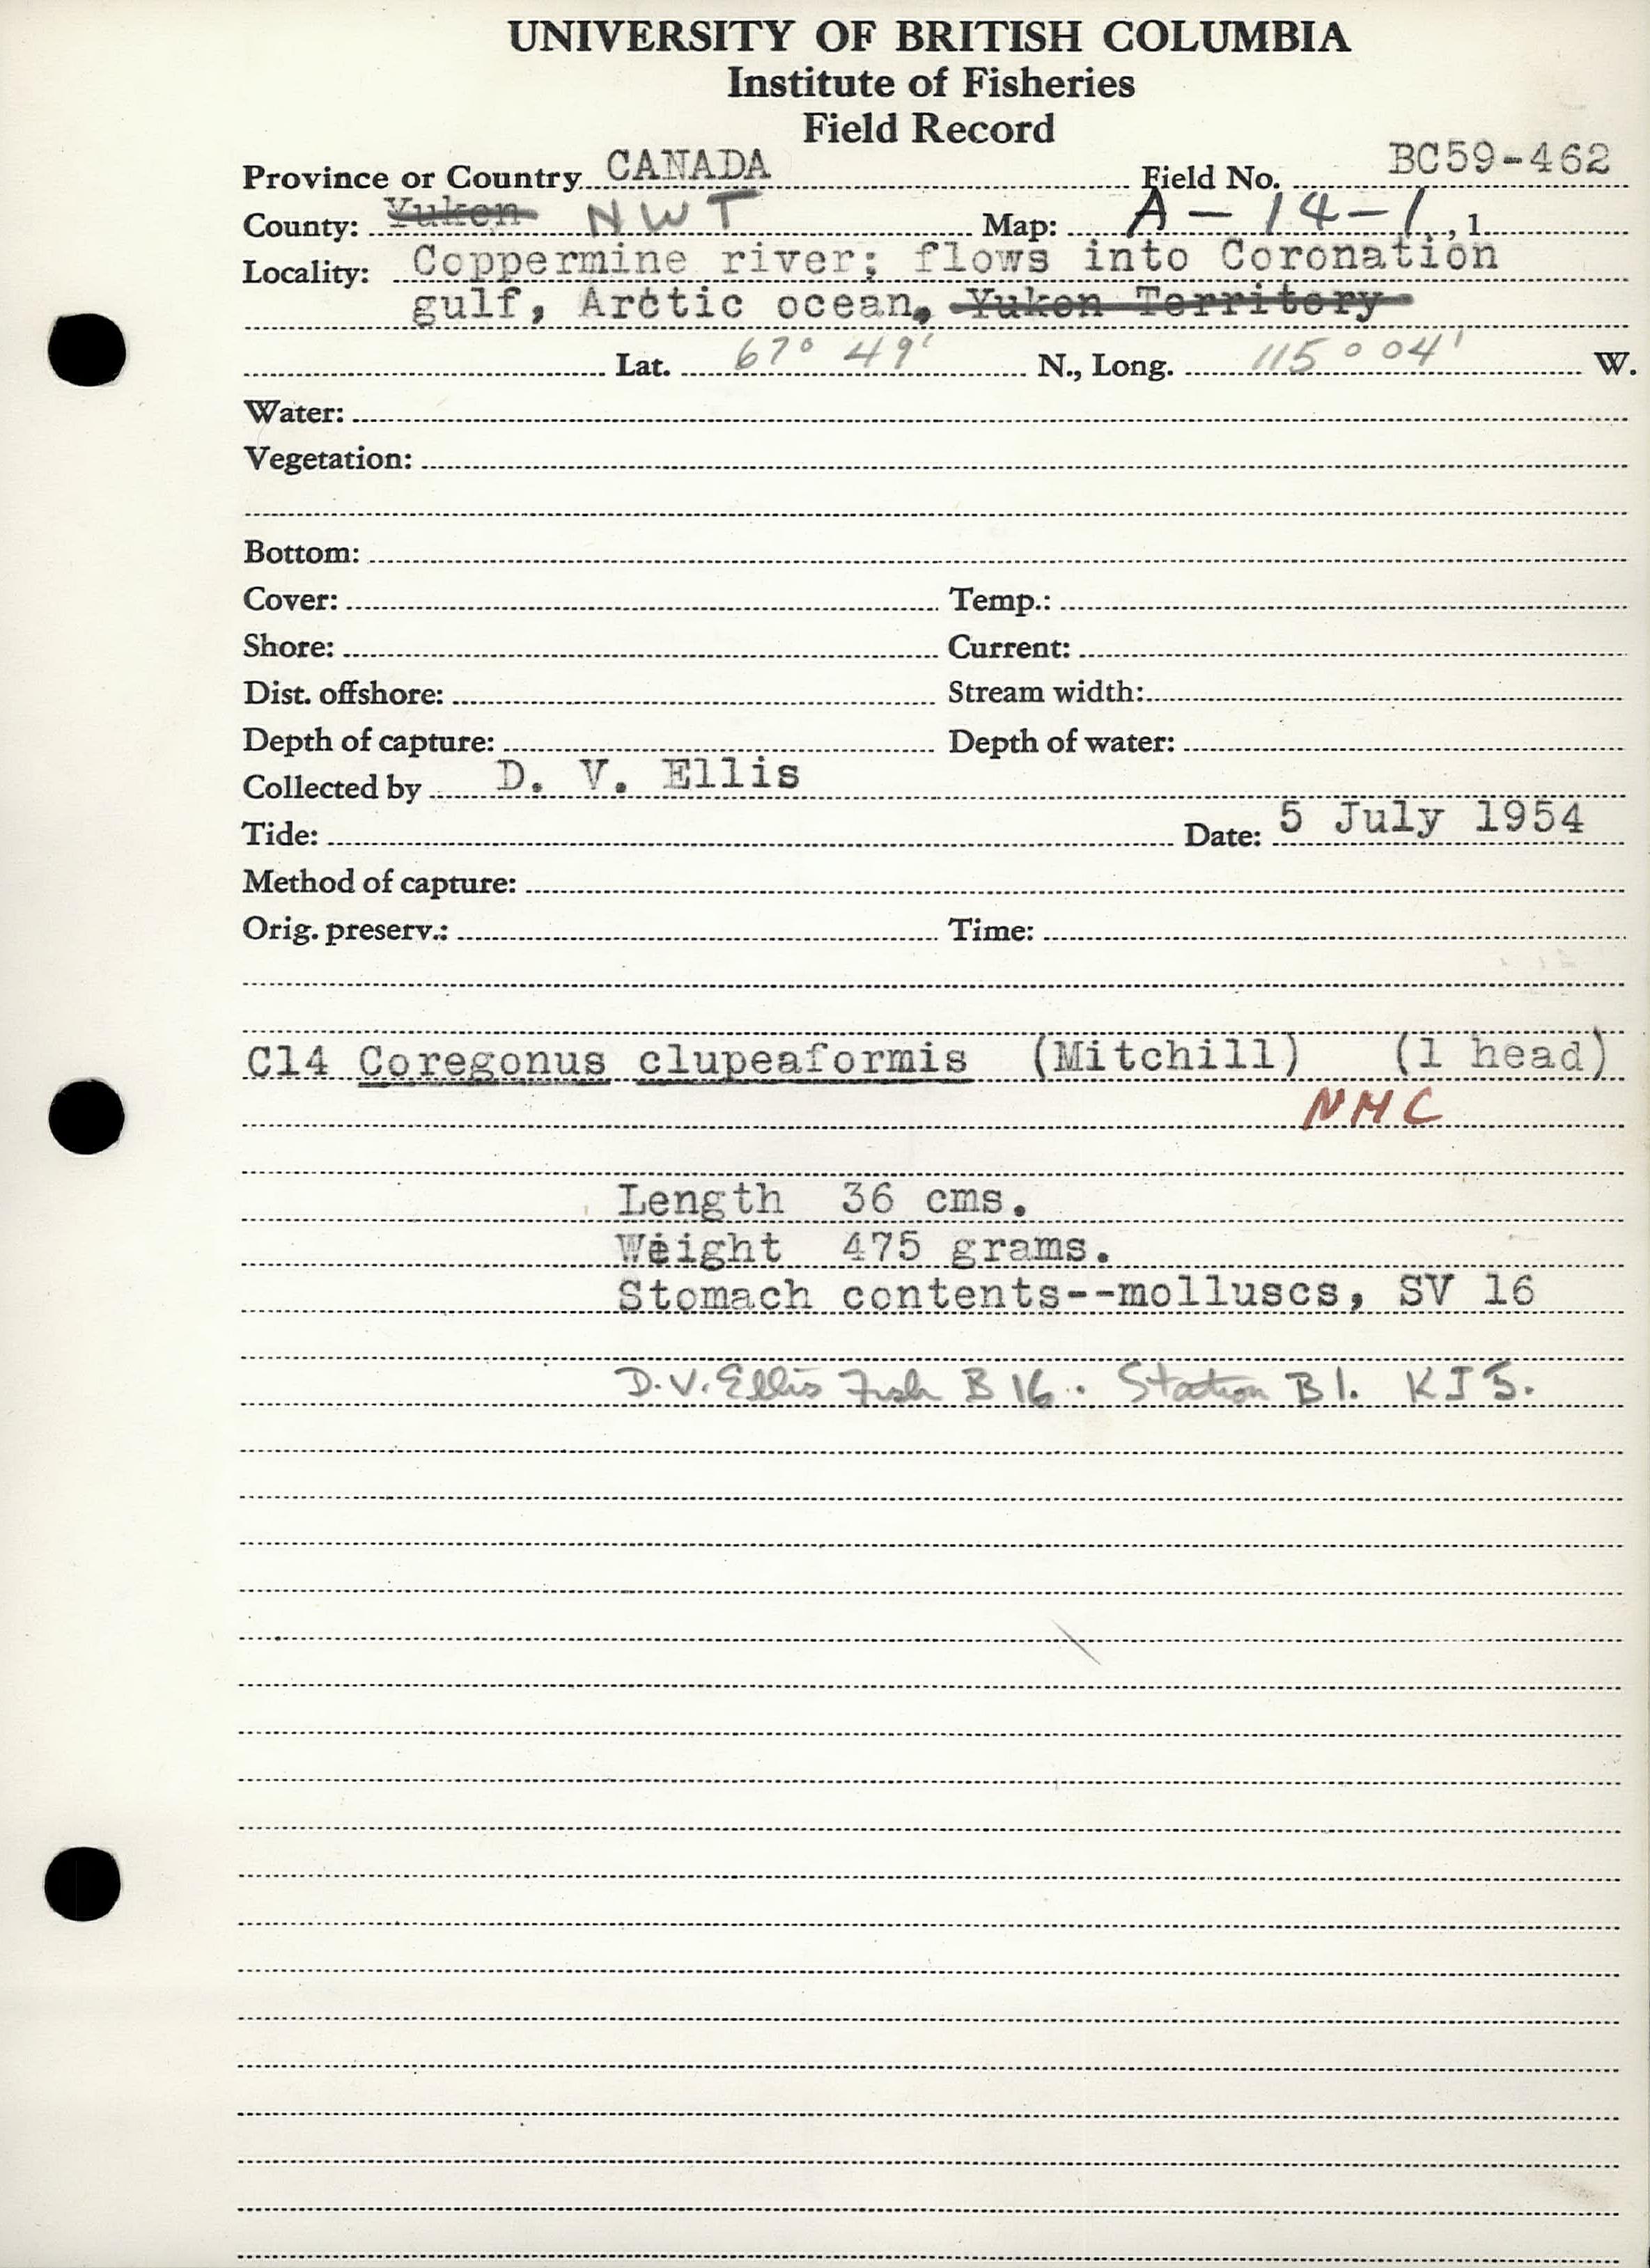 UNIVERSITY OF BRITISH COLUMBIA
Institute of Fisheries
Field Record
Province or Country CANADA Field No. BC59-462
County: Yukon NWT Map: A-14-1, 1
Locality: Coppermine river; flows into Coronation
gulf, Arctic ocean, Yukon Territory
Lat. 67° 49' N., Long. 115° 04' W.
Water:
Vegetation:
Bottom:
Cover: Temp.:
Shore: Current:
Dist. offshore: Stream width:
Depth of capture: Depth of water:
Collected by D. V. Ellis
Tide: Date: 5 July 1954
Method of capture:
Orig. preserv.: Time:
C14 Coregonus clupeaformis (Mitchill) (1 head)
NMC
Length 36 cms.
Weight 475 grams.
Stomach contents--molluscs, SV 16
D.V. Ellis Fish B 16. Station B1. KJ5.